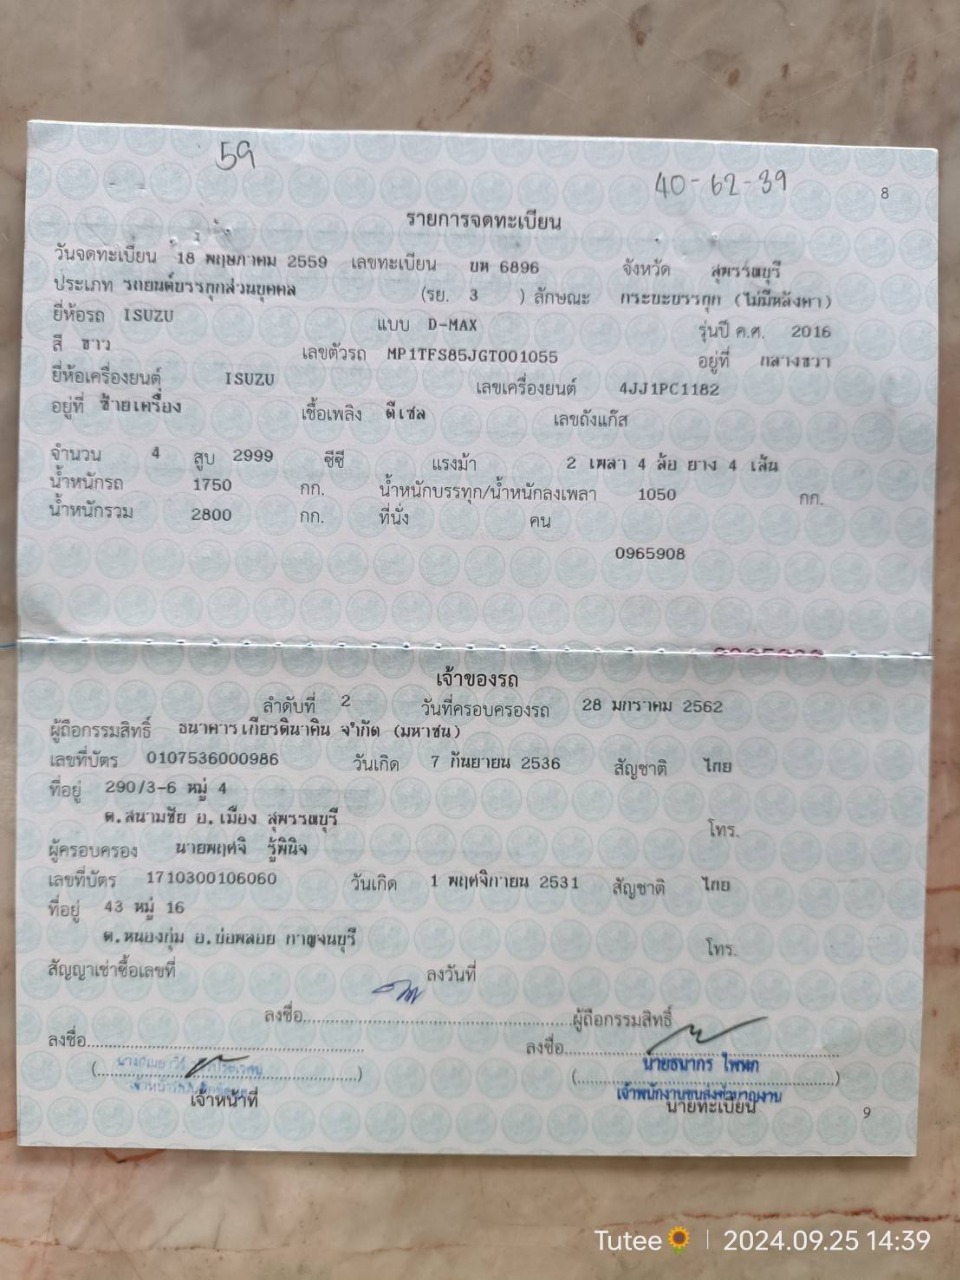 59
40-62-39
8
รายการจดทะเบียน
วันจดทะเบียน 18 พฤษภาคม 2559 เลขทะเบียน บห 6896 จังหวัด สุพรรณบุรี
ประเภท รถยนต์บรรทุกส่วนบุคคล (รย. 3 ) ลักษณะ กระบะบรรทุก (ไม่มีหลังคา)
ยี่ห้อรถ ISUZU แบบ D-MAX รุ่นปี ค.ศ. 2016
สี ขาว เลขตัวรถ MP1TFS85JGT001055 อยู่ที่ กลางขวา
ยี่ห้อเครื่องยนต์ ISUZU เลขเครื่องยนต์ 4JJ1PC1182
อยู่ที่ ซ้ายเครื่อง เชื้อเพลิง ดีเซล เลขถังแก๊ส
จำนวน 4 สูบ 2999 ซีซี แรงม้า 2 เพลา 4 ล้อ ยาง 4 เส้น
น้ำหนักรถ 1750 กก. น้ำหนักบรรทุก/น้ำหนักลงเพลา 1050 กก.
น้ำหนักรวม 2800 กก. ที่นั่ง คน
0965908
เจ้าของรถ
ลำดับที่ 2 วันที่ครอบครองรถ 28 มกราคม 2562
ผู้ถือกรรมสิทธิ์ ธนาคารเกียรตินาคิน จำกัด (มหาชน)
เลขที่บัตร 0107536000986 วันเกิด 7 กันยายน 2536 สัญชาติ ไทย
ที่อยู่ 290/3-6 หมู่ 4
ต.สนามชัย อ.เมือง สุพรรณบุรี โทร.
ผู้ครอบครอง นายพฤศจิ รู้พินิจ
เลขที่บัตร 1710300106060 วันเกิด 1 พฤศจิกายน 2531 สัญชาติ ไทย
ที่อยู่ 43 หมู่ 16
ต.หนองกุ่ม อ.บ่อพลอย กาญจนบุรี โทร.
สัญญาเช่าซื้อเลขที่ ลงวันที่
ลงชื่อ ผู้ถือกรรมสิทธิ์
ลงชื่อ ลงชื่อ
นายธนากร ไพพก
เจ้าพนักงานขนส่งชำนาญงาน
เจ้าหน้าที่ นายทะเบียน
9
Tutee🌻 | 2024.09.25 14:39